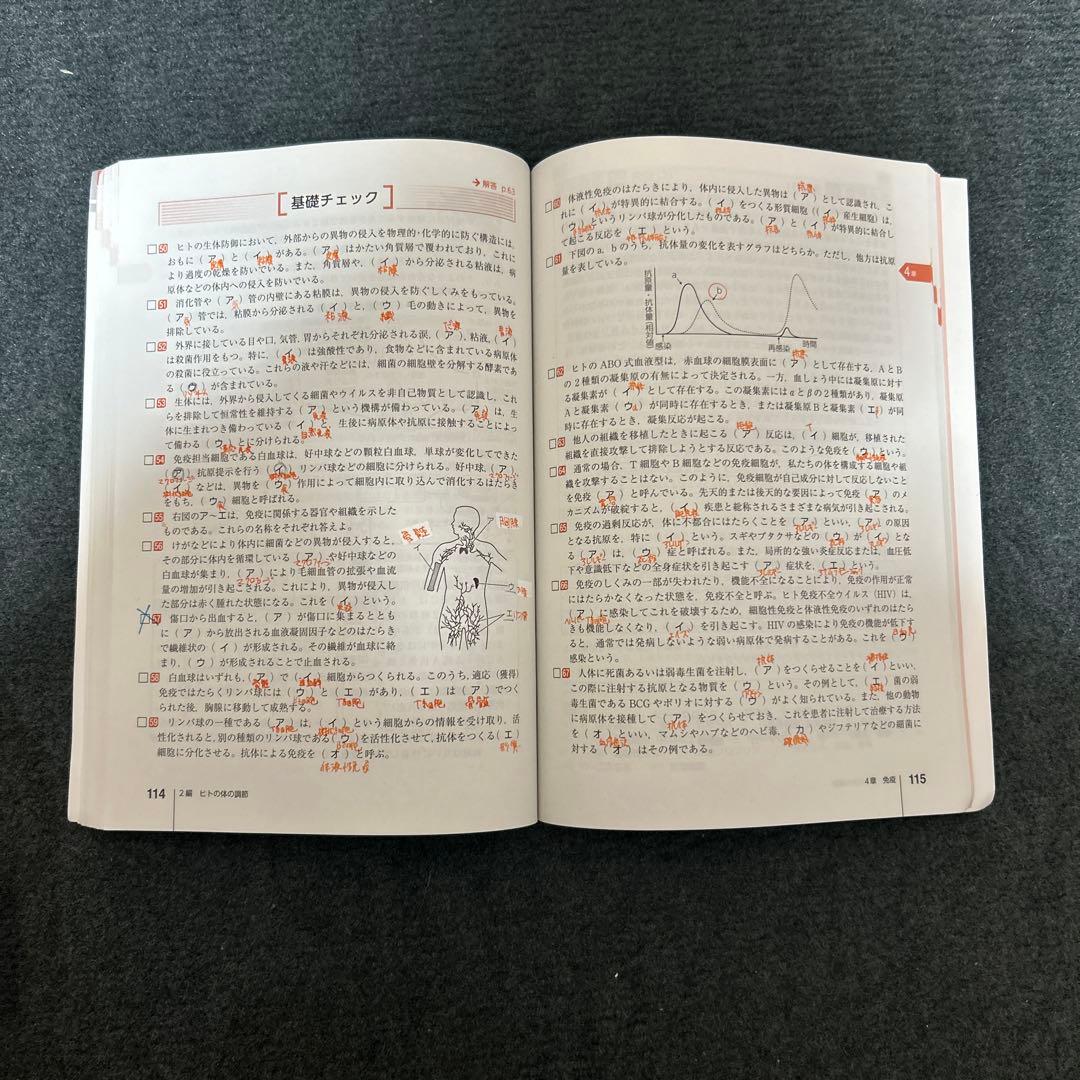 →解答 p.63
基礎チェック
□50 ヒトの生体防御において，外部からの異物の侵入を物理的・化学的に防ぐ構造には，
おもに（ア）と（イ）がある。（ア）はかたい角質層で覆われており，これに
皮膚 粘膜 皮膚
より過度の乾燥を防いでいる。また，角質層や，（イ）から分泌される粘液は，病
粘膜
原体などの体内への侵入を防いでいる。
□51 消化管や（ア）管の内壁にある粘膜は，異物の侵入を防ぐしくみをもっている。
（ア）管では，粘膜から分泌される（イ）と，（ウ）毛の動きによって，異物を
粘液 繊
排除している。
□52 外界に接している目や口，気管，胃からそれぞれ分泌される涙，（ア），粘液，（イ）
は殺菌作用をもつ。特に，（イ）は強酸性であり，食物などに含まれている病原体
の殺菌に役立っている。これらの液や汗などには，細菌の細胞壁を分解する酵素であ
る（ウ）が含まれている。
□53 生体には，外界から侵入してくる細菌やウイルスを非自己物質として認識し，これ
らを排除して恒常性を維持する（ア）という機構が備わっている。（ア）は，生
免疫 免疫
体に生まれつき備わっている（イ）と，生後に病原体や抗原に接触することによっ
自然免疫
て備わる（ウ）とに分けられる。
□54 免疫担当細胞である白血球は，好中球などの顆粒白血球，単球が変化してできた
（ア），抗原提示を行う（イ），リンパ球などの細胞に分けられる。好中球，（ア），
（イ）などは，異物を（ウ）作用によって細胞内に取り込んで消化するはたらき
をもち，（ウ）細胞と呼ばれる。
□55 右図のア〜エは，免疫に関係する器官や組織を示した
ものである。これらの名称をそれぞれ答えよ。
骨髄
胸腺
ウ
エ
□56 けがなどにより体内に細菌などの異物が侵入すると，
その部分に体内を循環している（ア）や好中球などの
白血球が集まり，（ア）により毛細血管の拡張や血流
量の増加が引き起こされる。これにより，異物が侵入し
た部分は赤く腫れた状態になる。これを（イ）という。
□57 傷口から出血すると，（ア）が傷口に集まるととも
に（ア）から放出される血液凝固因子などのはたらき
で繊維状の（イ）が形成される。その繊維が血球に絡
まり，（ウ）が形成されることで止血される。
□58 白血球はいずれも，（ア）で（イ）細胞からつくられる。このうち，適応（獲得）
免疫ではたらくリンパ球には（ウ）と（エ）があり，（エ）は（ア）でつく
T細胞 T細胞 骨髄
られた後，胸腺に移動して成熟する。
□59 リンパ球の一種である（ア）は，（イ）という細胞からの情報を受け取り，活
性化されると，別の種類のリンパ球である（ウ）を活性化させて，抗体をつくる（エ）
細胞に分化させる。抗体による免疫を（オ）と呼ぶ。
体液性免疫
114 2編 ヒトの体の調節
□60 体液性免疫のはたらきにより，体内に侵入した異物は（ア）として認識され，こ
抗原
れに（イ）が特異的に結合する。（イ）をつくる形質細胞（（イ）産生細胞）は，
抗体 抗体 抗体
（ウ）というリンパ球が分化したものである。（ア）と（イ）が特異的に結合し
抗原 抗体
て起こる反応を（エ）という。
□61 下図のa，bのうち，抗体量の変化を表すグラフはどちらか。ただし，他方は抗原
量を表している。
抗原量・抗体量（相対値）
a
b
感染
再感染
時間
4章
□62 ヒトのABO式血液型は，赤血球の細胞膜表面に（ア）として存在する，AとB
の2種類の凝集原の有無によって決定される。一方，血しょう中には凝集原に対す
る凝集素が（イ）として存在する。この凝集素にはαとβの2種類があり，凝集原
Aと凝集素（ウ）が同時に存在するとき，または凝集原Bと凝集素（エ）が同
時に存在するとき，凝集反応が起こる。
□63 他人の組織を移植したときに起こる（ア）反応は，（イ）細胞が，移植された
拒絶 T
組織を直接攻撃して排除しようとする反応である。このような免疫を（ウ）という。
□64 通常の場合，T細胞やB細胞などの免疫細胞が，私たちの体を構成する細胞や組
織を攻撃することはない。このように，免疫細胞が自己成分に対して反応しないこと
を免疫（ア）と呼んでいる。先天的または後天的な要因によって免疫（ア）のメ
カニズムが破綻すると，（イ）疾患と総称されるさまざまな病気が引き起こされる。
□65 免疫の過剰反応が，体に不都合にはたらくことを（ア）といい，（ア）の原因
となる抗原を，特に（イ）という。スギやブタクサなどの（ウ）が（イ）とな
る（ア）は，（ウ）症と呼ばれる。また，局所的な強い炎症反応または，血圧低
下や意識低下などの全身症状を引き起こす（ア）症状を，（エ）という。
□66 免疫のしくみの一部が失われたり，機能不全になることにより，免疫の作用が正常
にはたらかなくなった状態を，免疫不全と呼ぶ。ヒト免疫不全ウイルス（HIV）は，
（ア）に感染してこれを破壊するため，細胞性免疫と体液性免疫のいずれのはたら
きも機能しなくなり，（イ）を引き起こす。HIVの感染により免疫の機能が低下す
エイズ
ると，通常では発病しないような弱い病原体で発病することがある。これを（ウ）
感染という。
□67 人体に死菌あるいは弱毒生菌を注射し，（ア）をつくらせることを（イ）といい，
抗体
この際に注射する抗原となる物質を（ウ）という。その例として，（エ）菌の弱
毒生菌であるBCGやポリオに対する（ウ）がよく知られている。また，他の動物
に病原体を接種して（ア）をつくらせておき，これを患者に注射して治療する方法
抗体
を（オ）といい，マムシやハブなどのヘビ毒，（カ）やジフテリアなどの細菌に
対する（オ）はその例である。
4章 免疫 115